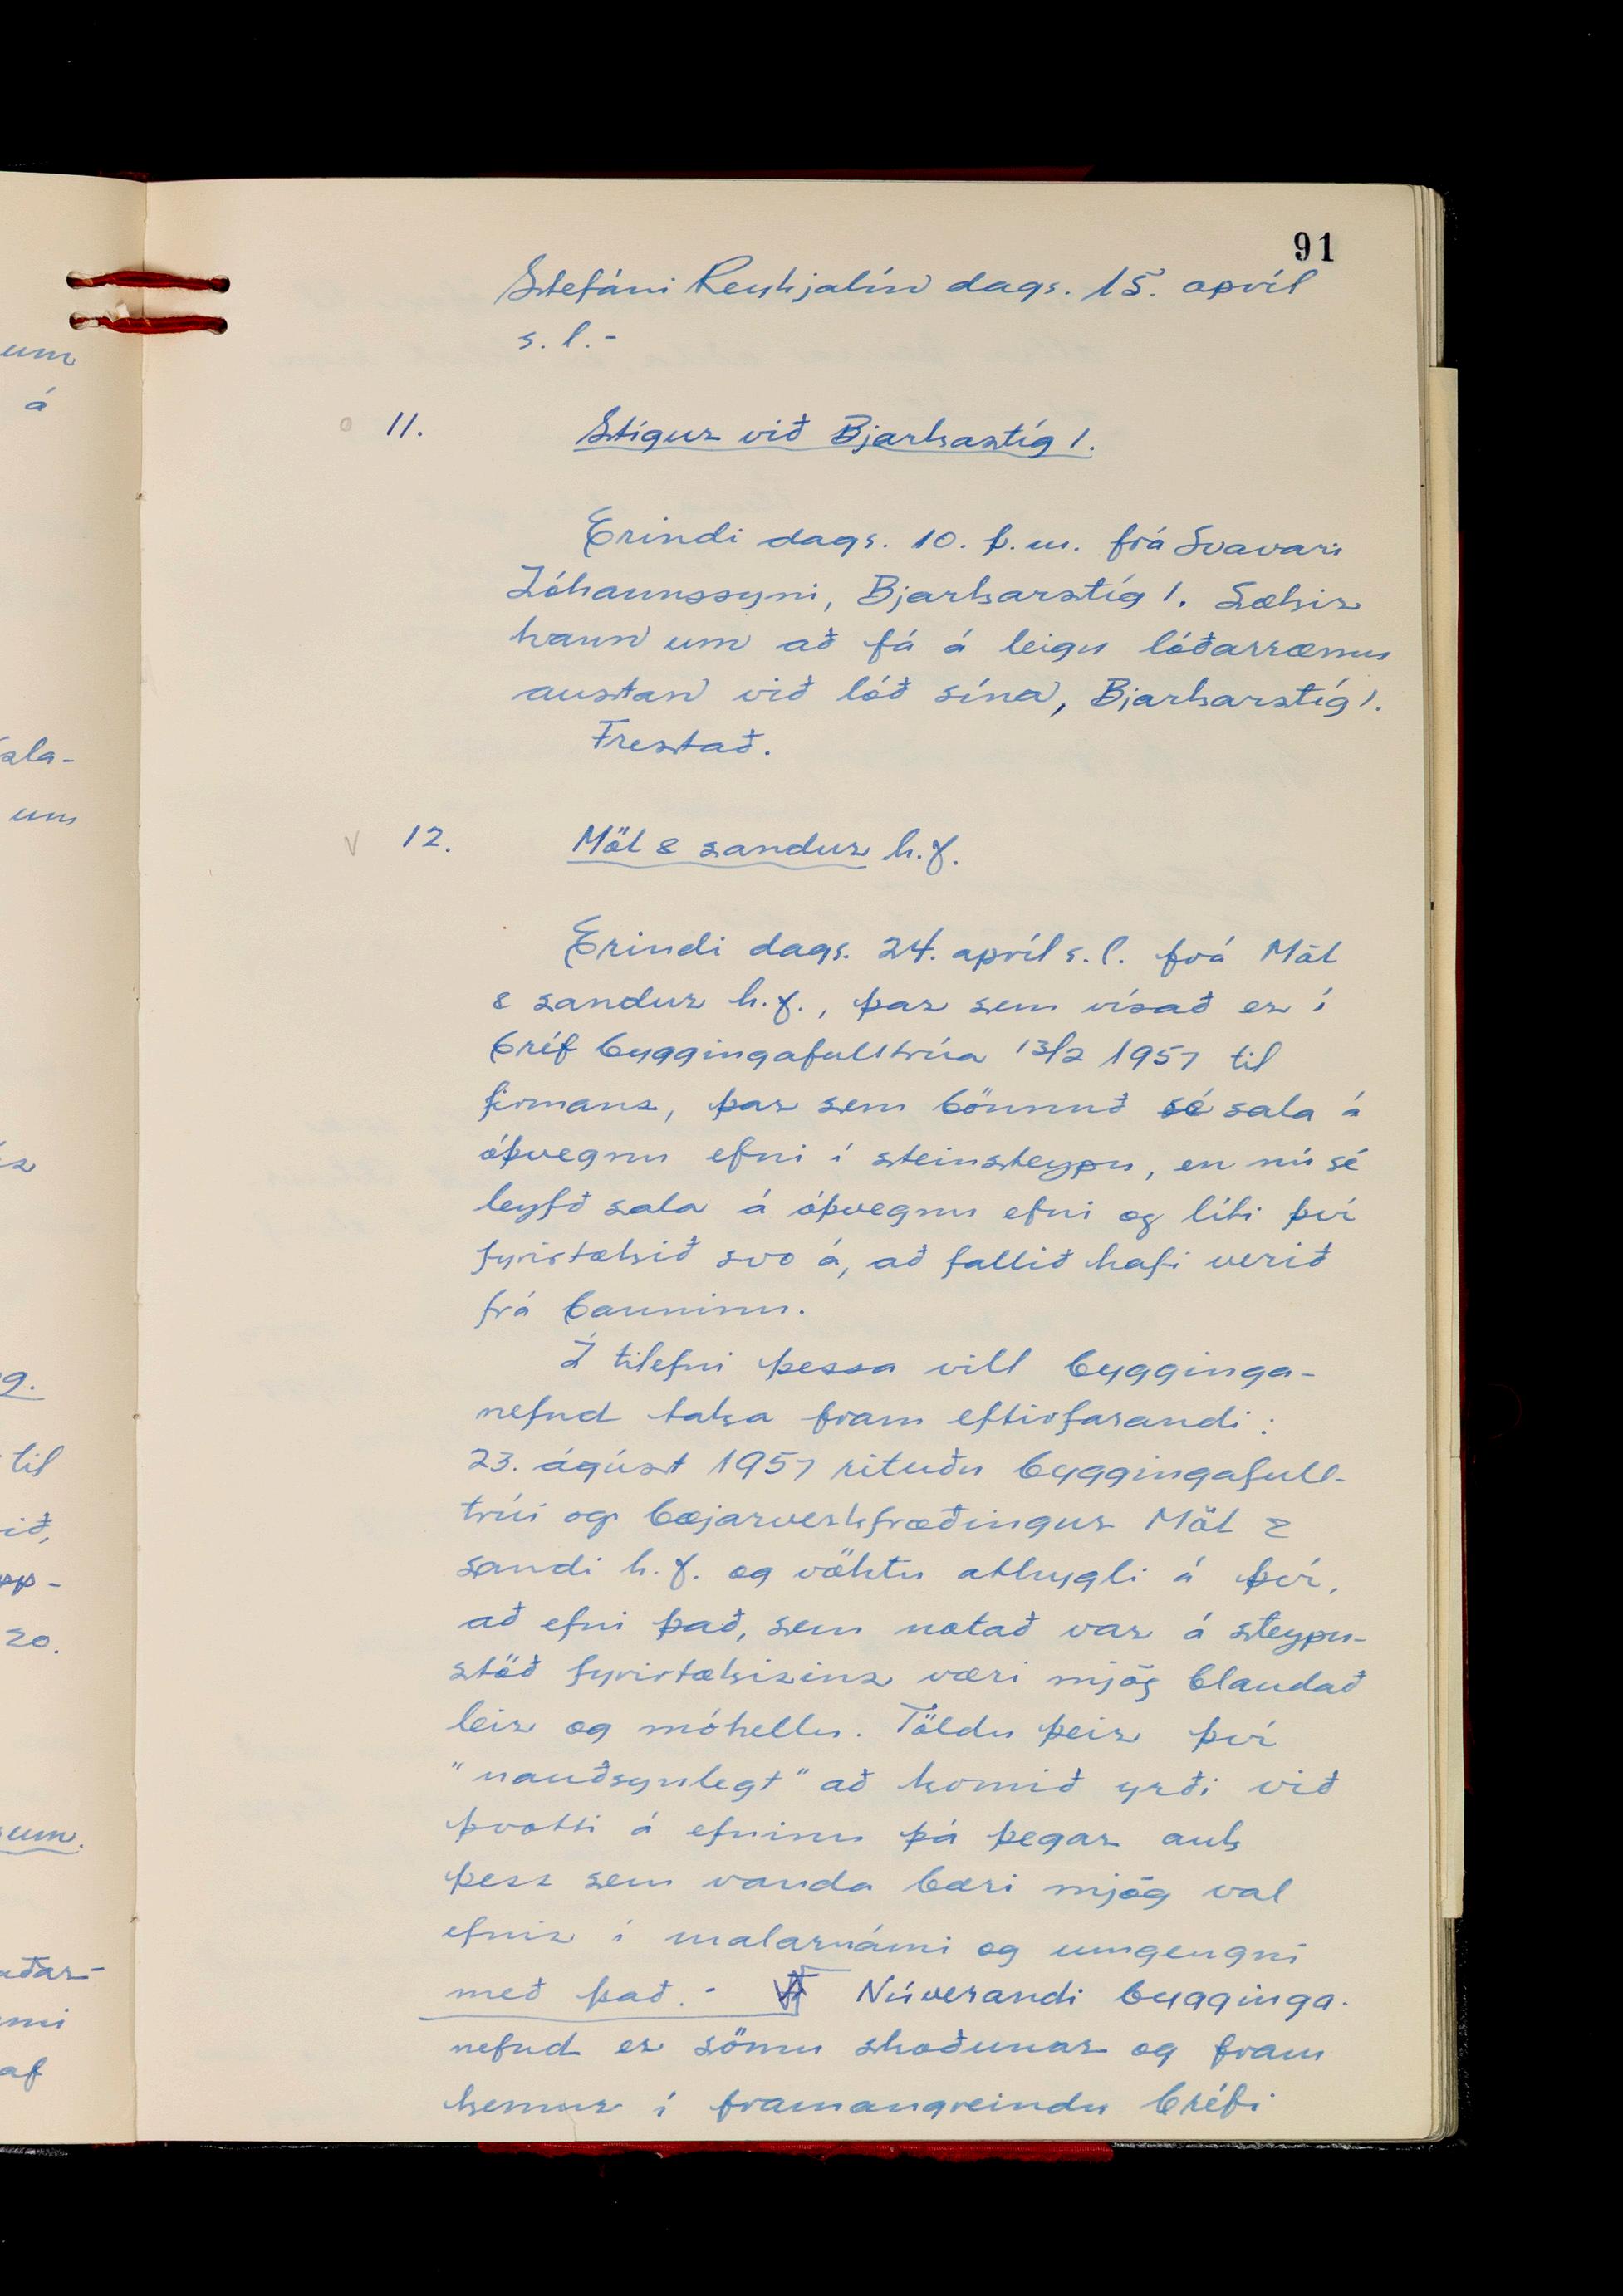 91
Stefáni Reykjalín dags. 15. apríl
s. l. -
11. Stígur við Bjarkastíg 1.
Erindi dags. 10. þ. m. frá Svavari
Jóhannssyni, Bjarkarstíg 1. Sækir
hann um að fá á leigu lóðarræmu
austan við lóð sína, Bjarkarstíg 1.
Frestað.
12. Möl & sandur h.f.
Erindi dags. 24. apríl s. l. frá Möl
& sandur h.f., þar sem vísað er í
bréf byggingafulltrúa 13/2 1957 til
firmans, þar sem bönnuð sé sala á
óþvegnu efni í steinsteypu, en nú sé
leyfð sala á óþvegnu efni og líti því
fyrirtækið svo á, að fallið hafi verið
frá banninu.
Í tilefni þessa vill bygginga-
nefnd taka fram eftirfarandi:
23. ágúst 1957 rituðu byggingafull-
trúi og bæjarverkfræðingur Möl &
sandi h.f. og vöktu athygli á því,
að efni það, sem notað var á steypu-
stöð fyrirtækisins væri mjög blandað
leir og móhellu. Töldu þeir því
"nauðsynlegt" að komið yrði við
þvotti á efninu þá þegar auk
þess sem vanda bæri mjög val
efnis í malarnámi og umgengni
með það. - Núverandi bygginga-
nefnd er sömu skoðunar og fram
kemur í framangreindu bréfi
um
á
sla-
um
g.
til
ið,
pp-
20.
um.
aðar-
mi
af